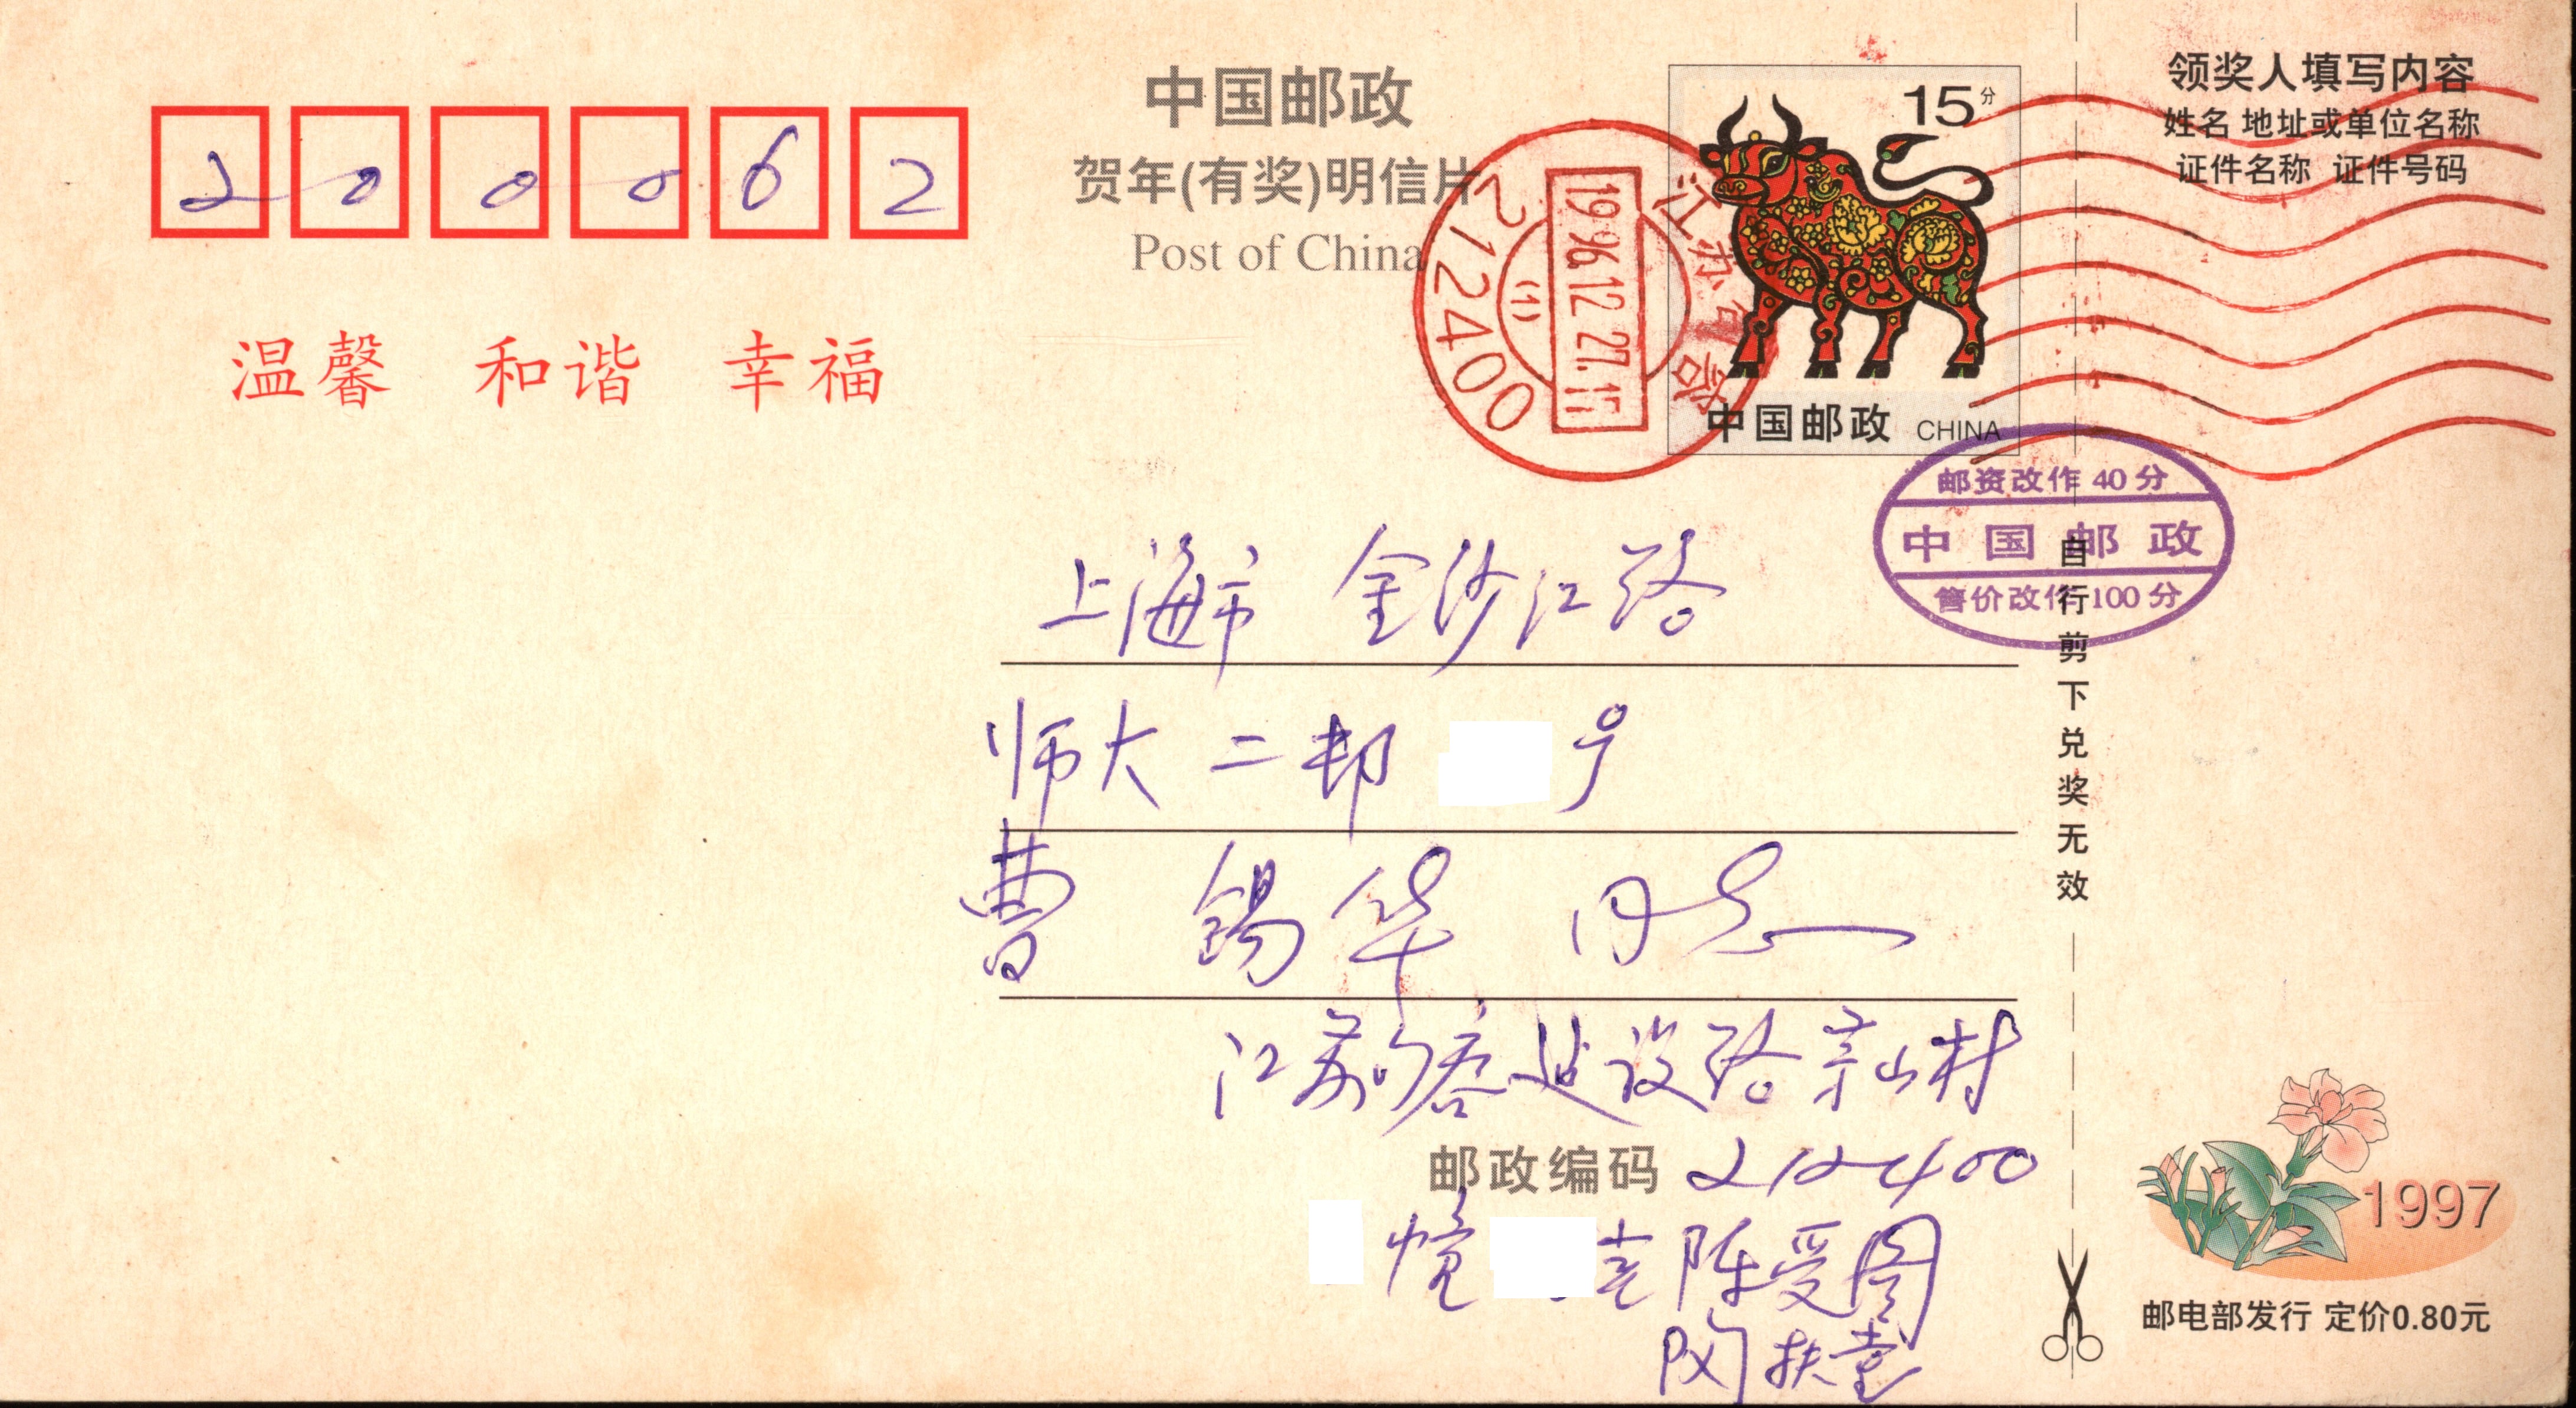 200062
温馨 和谐 幸福
中国邮政
贺年(有奖)明信片
Post of China
212400
(1)
1996.12.27.17
江苏句容
15分
中国邮政 CHINA
领奖人填写内容
姓名 地址或单位名称
证件名称 证件号码
邮资改作 40 分
中国邮政
售价改作 100 分
自行剪下兑奖无效
上海市 金沙江路
师大二村 号
曹锡华 同志
江苏句容建设路茅山村
邮政编码 212400
幢 室 陈受图
闵扶堂
1997
邮电部发行 定价0.80元